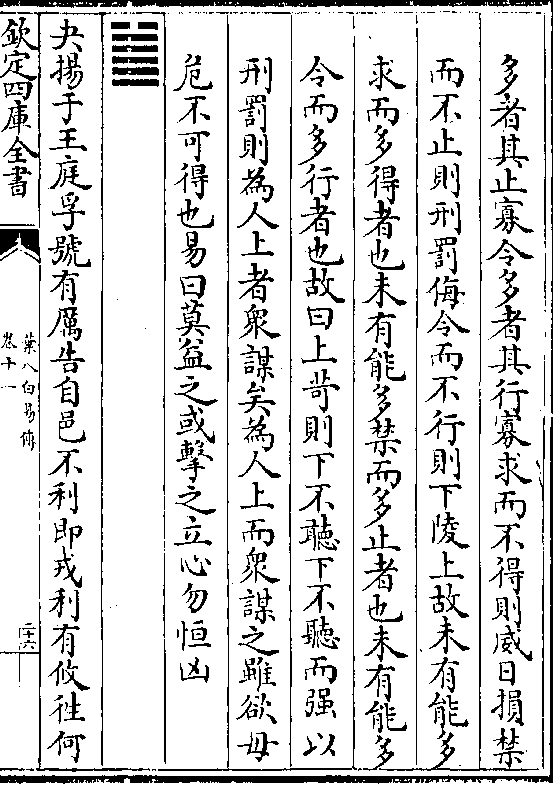 多者其止寡令多者其行寡求而不得則威日損禁
而不止則刑罰侮令而不行則下陵上故未有能多
求而多得者也未有能多禁而多止者也未有能多
令而多行者也故曰上苛則下不聽下不聽而强以
刑罰則為人上者衆謀矣為人上而衆謀之雖欲毋
危不可得也易曰莫益之或擊之立心勿恒凶
夬揚于王庭孚號有厲告自邑不利即戎利有攸往何
欽定四庫全書
葉八白易傳
卷十一
二十六